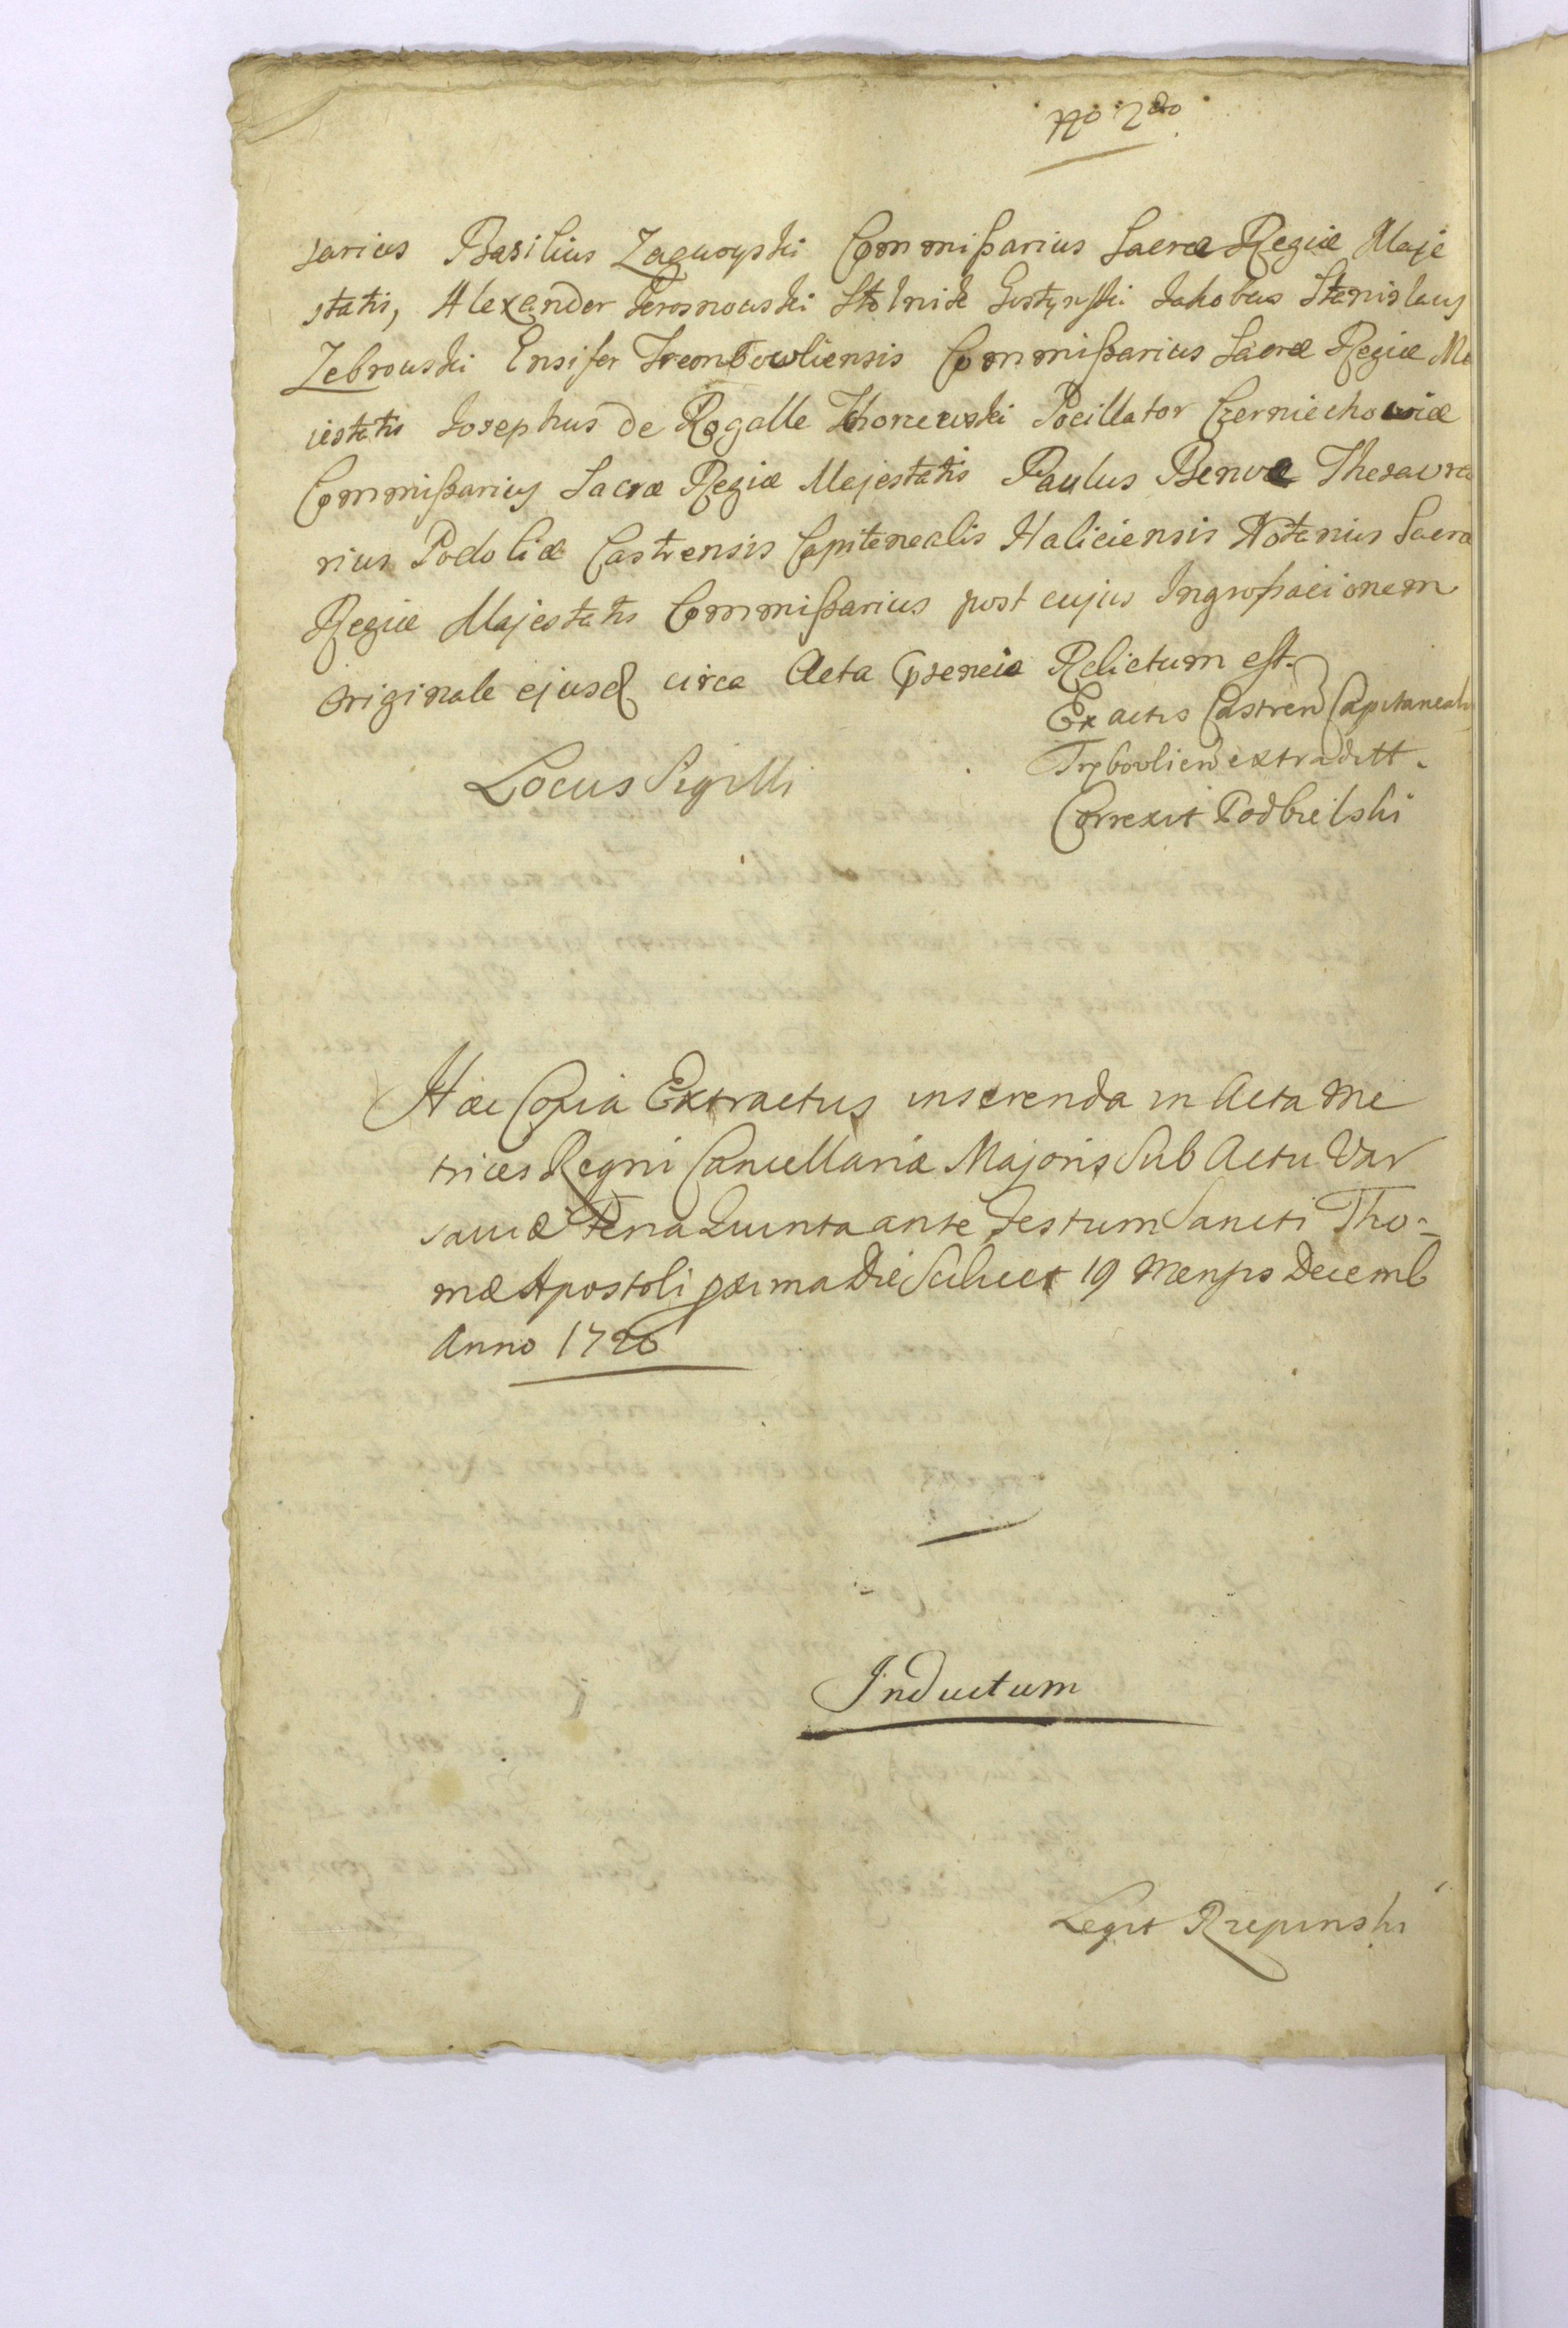 No 2do
sarius Basilius Zagwoyski Commißarius Sacræ Regiæ Maje
statis, Alexander Jerosnowski Stolnik Gostynski Jakobus Stanislaus
Zebrowski Ensifer Trembowliensis Commißarius Sacræ Regiæ Ma
iestatis Josephus de Rogalle Pocillator Czerniechoviæ
Commißarius Sacræ Regiæ Majestatis Paulus Benoæ Thesaura
rius Podoliæ Castrensis Capitanealis Haliciensis Notarius Sacra
Regiæ Majestatis Commißarius post cujus Ingroßacionem
originale ejusd circa Acta Relictum est.
Ex actis Castren Capitaneal
Locus Sigilli
Trębovlien extradit.
Correxit Podbielski
Hæc Copia Extractus inserenda in Acta Me
trices Regni Cancellariæ Majoris Sub Actu Var
saviæ Feria Quinta ante Festum Sancti Tho-
mæ Apostoli proxima Die Scilicet 19 Mensis Decemb
Anno 1726
Inductum
Legit Rzepinski